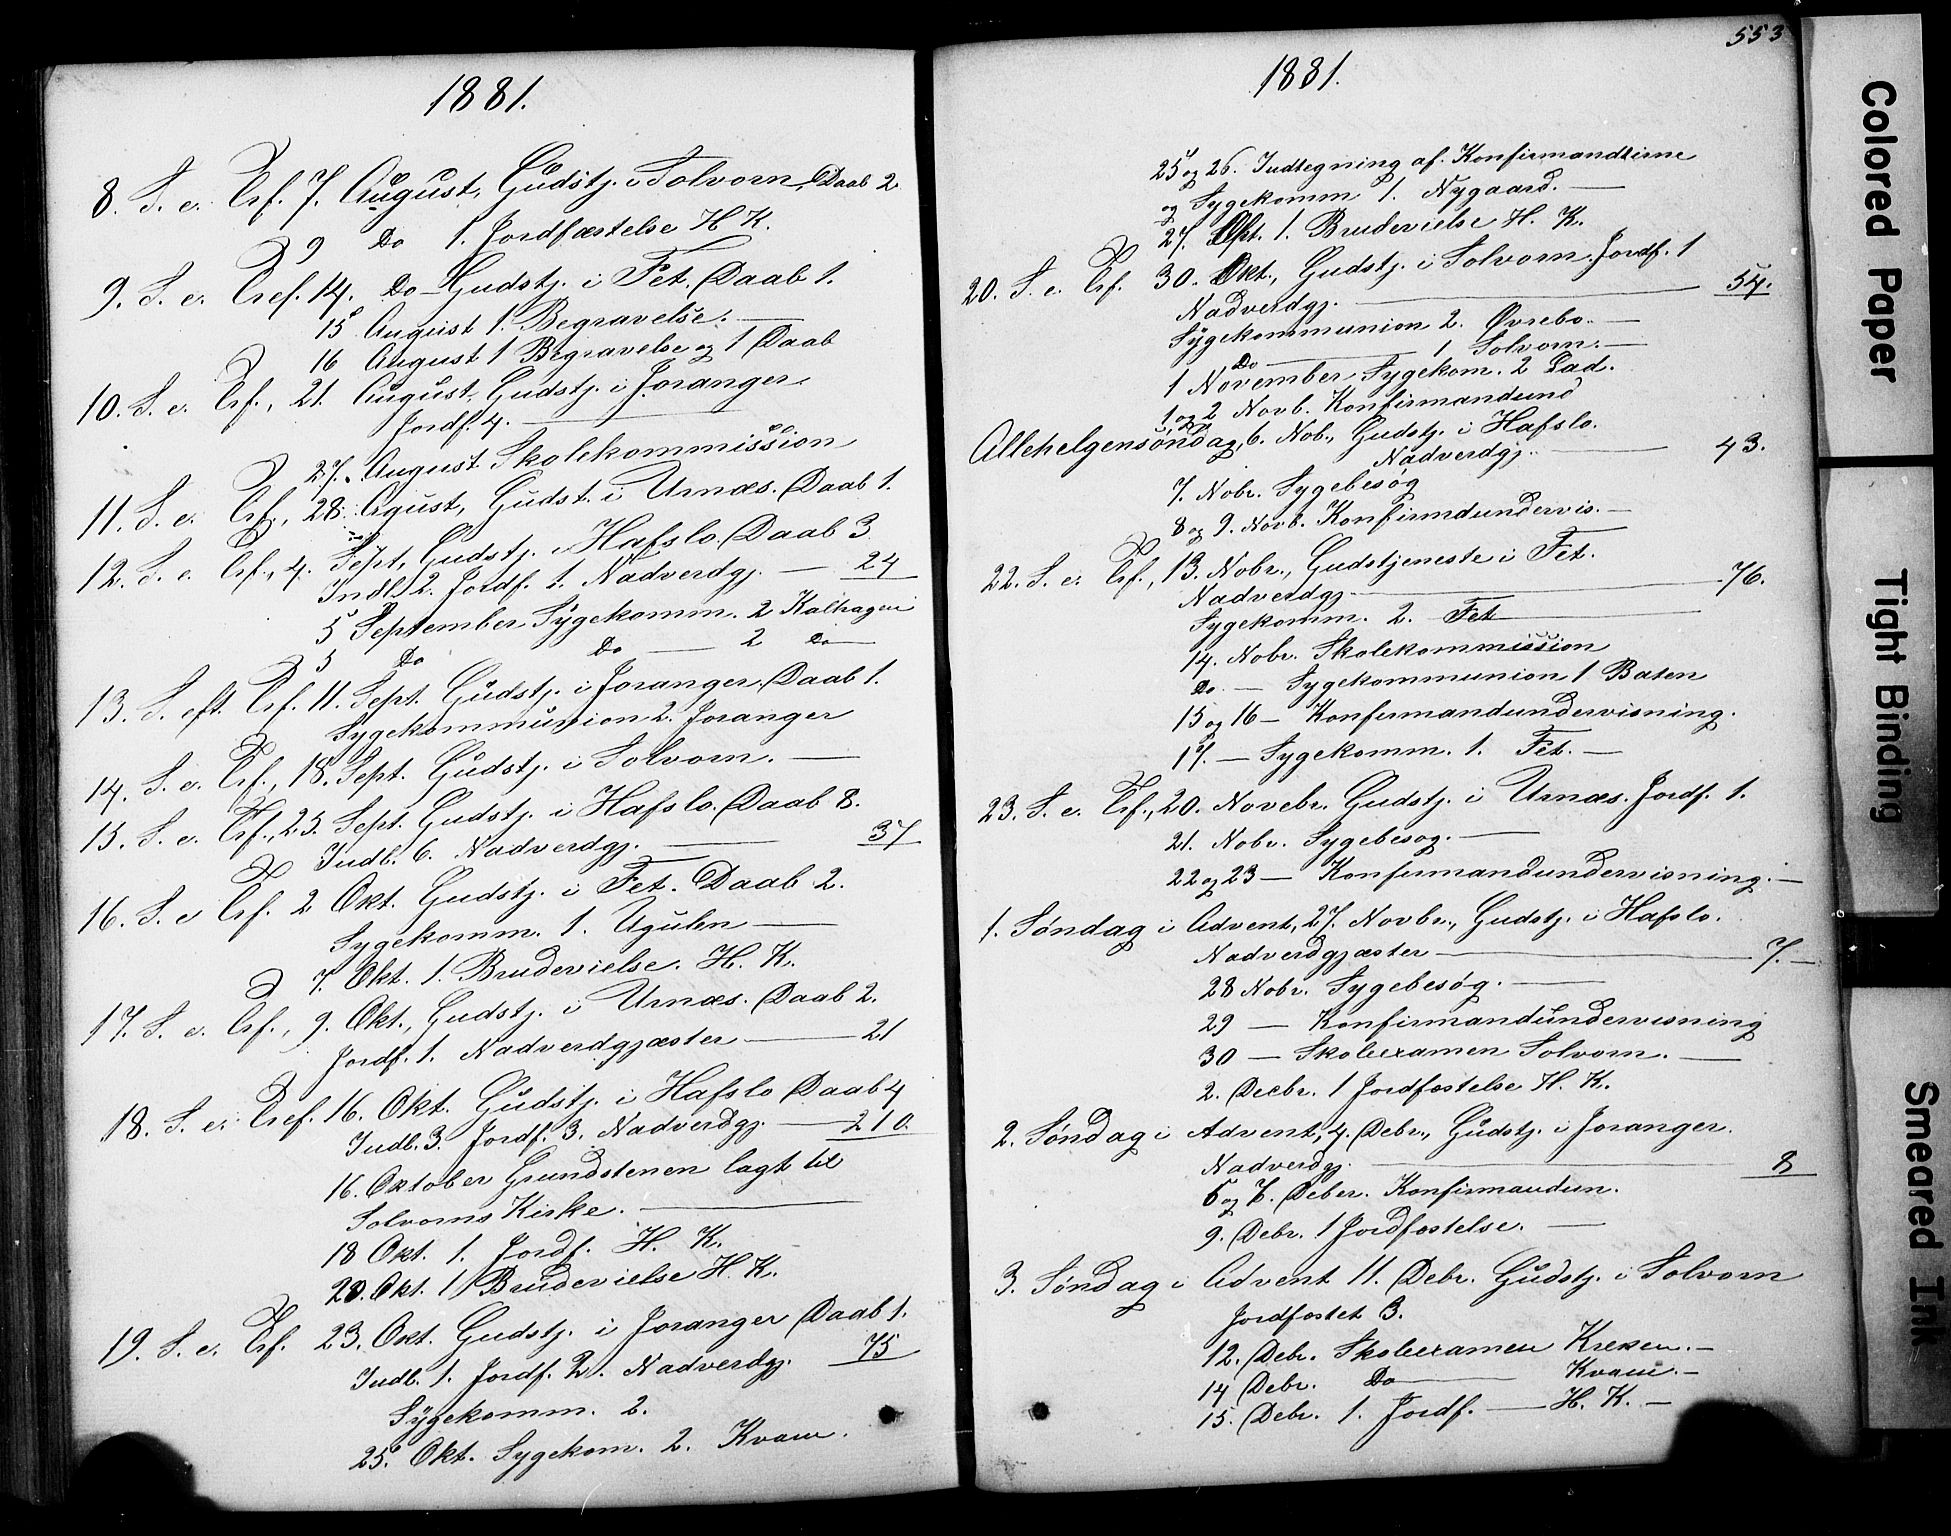 1881.
8. S. e. Trf. 7. August, Gudstj. i Solvorn, Daab 2
9 Do 1. Jordfæstelse H K.
9. S. e. Tref. 14. Do Gudstj. i Fet. Daab 1.
15 August 1. Begravelse. —
16 August 1 Begravelse og 1 Daab
10. S. e. Trf., 21. August, Gudstj. i Joranger
Jordf. 4. —
27. August Skolekommission
11. S. e. Trf., 28. Agust, Gudst. i Urnæs. Daab 1.
12. S. e. Trf., 4. Sept, Gudstj. i Hafslo. Daab 3
Indl. 2. Jordf. 1. Nadverdgj. — 24
5 September Sygekomm. 2 Kalhagen
5 Do Do — 2 Do
13. S. eft. Trf. 11. Sept. Gudstj. i Joranger. Daab 1.
Sygekommunion 2. Joranger
14. S. e. Trf., 18. Sept. Gudstj. i Solvorn. —
15. S. e. Trf., 25. Sept. Gudstj. i Hafslo. Daab 8.
Indl. 6. Nadverdgj. — 37
16. S. e Trf. 2 Okt. Gudstj. i Fet. Daab 2.
Sygekomm. 1. Ugulen —
7. Okt. 1. Brudevielse. H. K.
17. S. e. Trf., 9. Okt., Gudstj. i Urnæs. Daab 2.
Jordf. 1. Nadverdgjæster — 21
18. S. e. Tref. 16. Okt. Gudstj. i Hafslo Daab 4
Indl. 3. Jordf. 3. Nadverdgj. — 210.
16. Oktober Grundstenen lagt til
Solvorns Kirke. —
18 Okt. 1. Jordf. H. K.
20. Okt. 1 Brudevielse H. K.
19. S. e. Trf. 23. Okt. Gudstj. i Joranger Daab 1.
Indl. 1. Jordf. 2. Nadverdgj. 75
Sygekomm. 2.
25. Okt. Sygekom. 2. Kvam.
553
1881.
25 og 26. Indtegning af Konfirmandterne
og Sygekomm 1. Nygaard. —
27. Okt. 1. Brudevielse H. K.
20. S. e. Trf. 30. Okt., Gudstj. i Solvorn. Jordf. 1
Nadverdgj. — 54.
Sygekommunion 2. Øvrebo. —
Do — 1 Solvorn. —
1 November Sygekom. 2 Lad.
1 og 2 Novb. Konfirmandund
Allehelgensøndag, 6. Nob., Gudstj. i Hafslo.
Nadverdgj. — 43.
7. Nobr. Sygebesøg
8 og 9. Novb. Konfirmdundervis. —
22. S. e. Trf., 13. Nobr., Gudstjeneste i Fet.
Nadverdgj. — 76.
Sygekomm. 2. Fet —
14. Nobr. Skolekommission
Do. — Sygekommunion 1 Baten
15 og 16 — Konfirmandundervisning.
17. — Sygekomm. 1. Fet. —
23. S. e. Trf., 20. Novebr. Gudstj. i Urnæs. Jordf. 1.
21. Nobr. Sygebesog. —
22 og 23 — Konfirmandundervisning. —
1. Søndag i Advent, 27. Novbr., Gudstj. i Hafslo.
Nadverdgjæster — 7. —
28 Nobr. Sygebesøg. —
29 — Konfirmandundervisning
30 — Skolexamen Solvorn. —
2. Decbr. 1 Jordfæstelse H. K.
2. Søndag i Advent, 4. Debr., Gudstj. i Joranger.
Nadverdgj. — 8
6 og 7. Deber. Konfirmandun.
9. Debr. 1 Jordfæstelse. —
3. Søndag i Advent 11. Debr. Gudstj. i Solvorn
Jordfæstet 3.
12. Debr. Skolexamen Kreken. —
14 Debr. Do — Kvam. —
15. Debr. 1. Jordf. — H. K. —
Colored Paper
Tight Binding
Smeared Ink